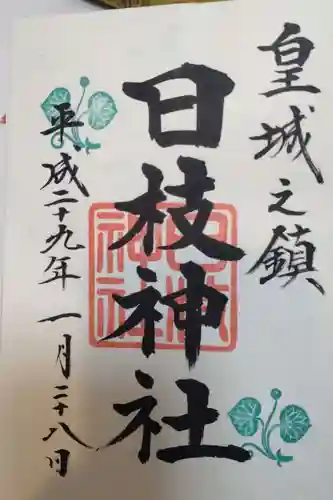 皇城之鎮
日枝神社
平成二十九年一月二十八日